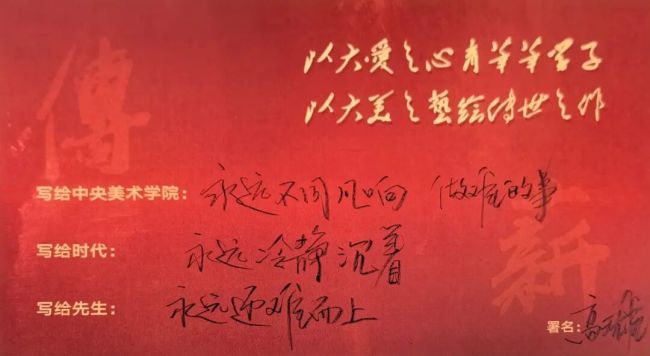 傳
以大愛之心育莘莘學子
以大美之藝繪傳世之作
写给中央美术学院：永远不同凡响 做难的事
写给时代：永远冷静沉着
写给先生：永远迎难而上
新
署名：高